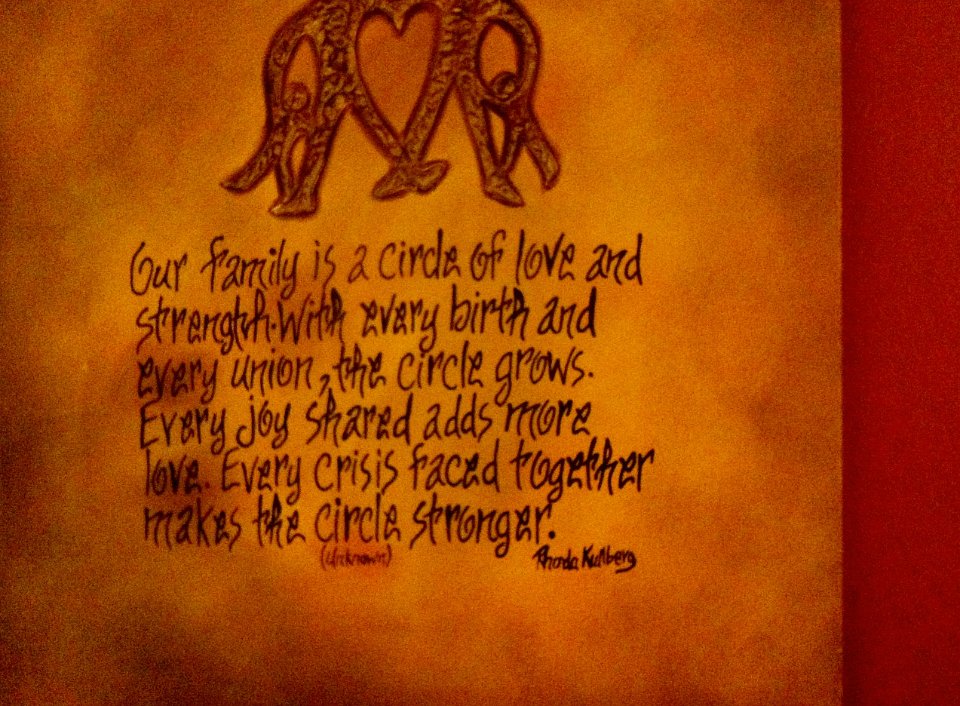 Our family is a circle of love and
strength. With every birth and
every union, the circle grows.
Every joy shared adds more
love. Every crisis faced together
makes the circle stronger.
(unknown)
Rhonda Kullberg